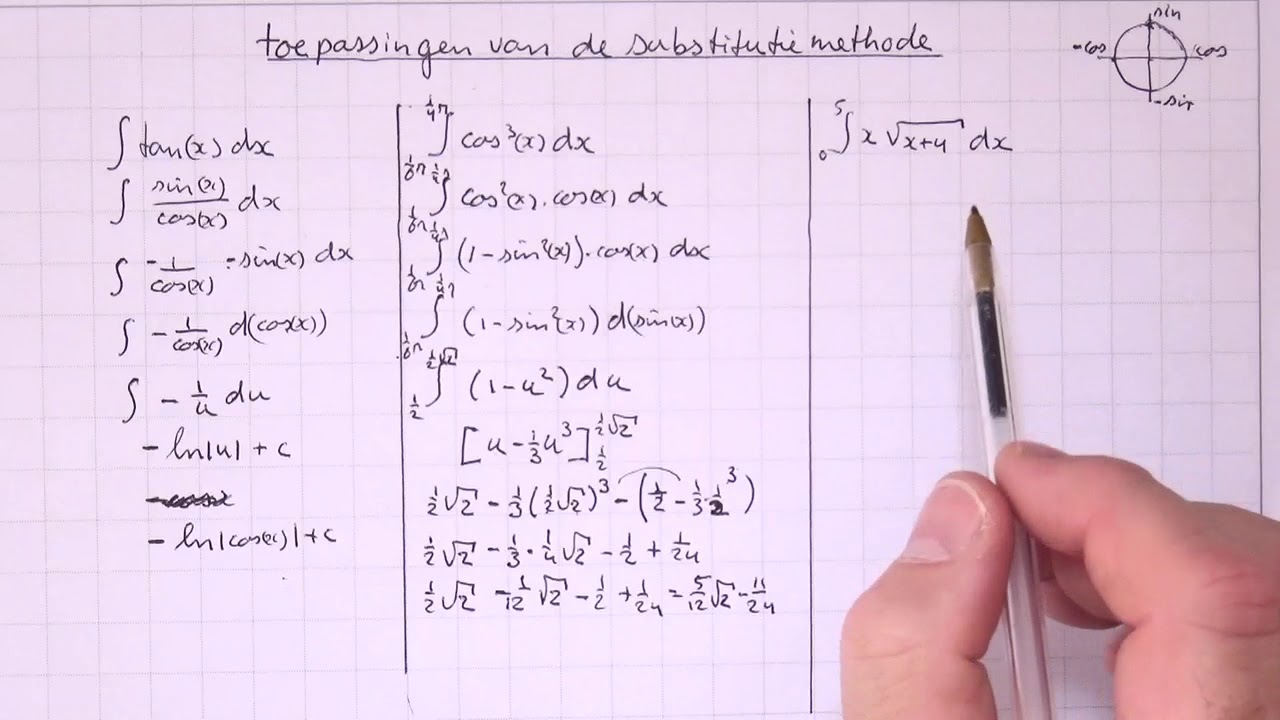 toepassingen van de substitutiemethode
sin
-cos cos
-sin
∫ tan(x) dx
∫ sin(x)/cos(x) dx
∫ -1/cos(x) · -sin(x) dx
∫ -1/cos(x) d(cos(x))
∫ -1/u du
-ln|u| + c
-ln|cos(x)| + c
∫_{1/6π}^{1/4π} cos³(x) dx
∫_{1/6π}^{1/4π} cos²(x) · cos(x) dx
∫_{1/6π}^{1/4π} (1 - sin²(x)) · cos(x) dx
∫_{1/6π}^{1/4π} (1 - sin²(x)) d(sin(x))
∫_{1/2}^{1/2√2} (1 - u²) du
[u - 1/3u³]_{1/2}^{1/2√2}
1/2√2 - 1/3(1/2√2)³ - (1/2 - 1/3·1/2³)
1/2√2 - 1/3 · 1/4√2 - 1/2 + 1/24
1/2√2 - 1/12√2 - 1/2 + 1/24 = 5/12√2 - 11/24
∫_0^5 x√(x+4) dx